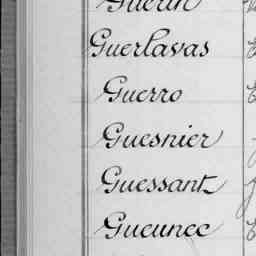 Guerin
Guerlavas
Guerro
Guesnier
Guessant
Gueunec